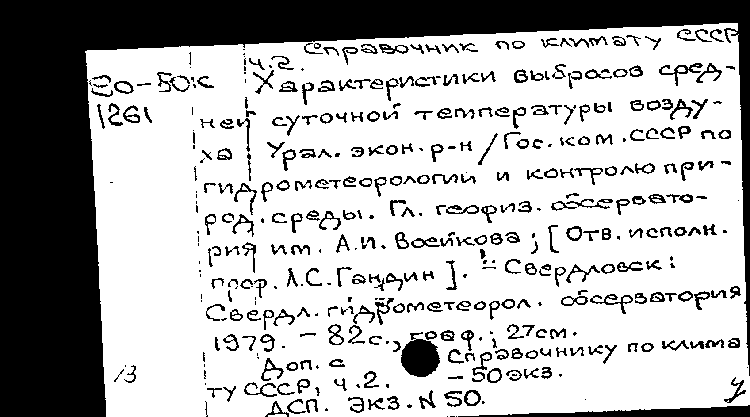 Справочник по климату СССР
ч.2.
20-50к Характеристики выбросов сред-
1261 ней суточной температуры возду-
ха. Урал. экон. р-н / Гос. ком. СССР по
гидрометеорологии и контролю при-
род. среды. Гл. геофиз. обсервато-
рия им. А.И. Воейкова; [Отв. исполн.
проф. Л.С. Гандин]. - Свердловск:
Свердл. гидрометеорол. обсерватория
1979. - 82с., граф.; 27см.
Доп. с Справочнику по клима
13 ту СССР, ч.2. - 50 экз.
ДСП. Экз. N 50. У